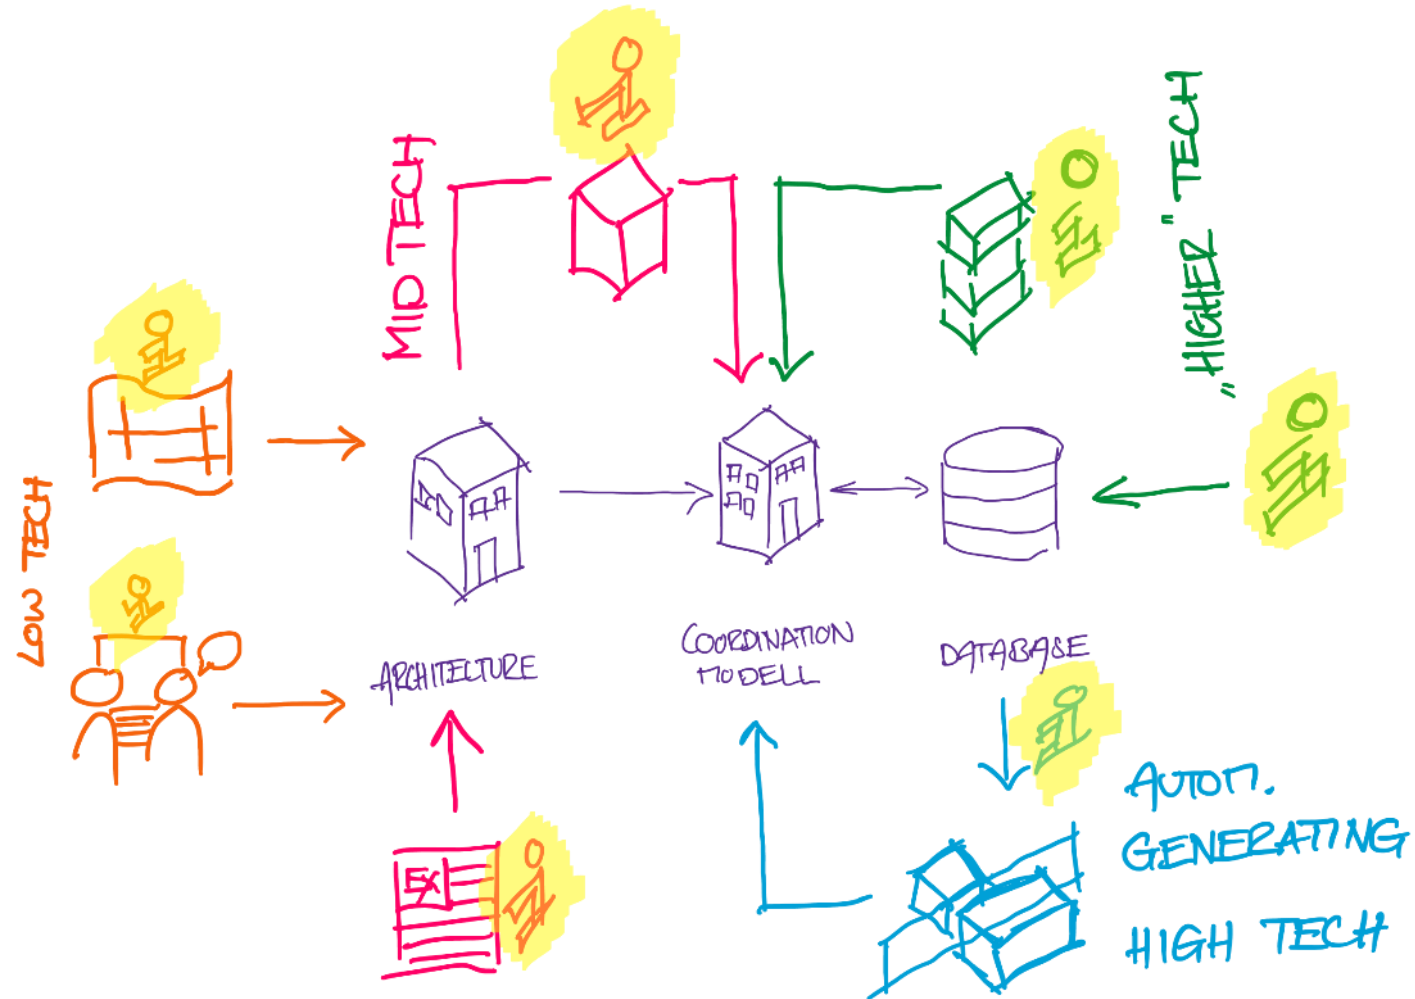 MID TECH
„HIGHER" TECH
LOW TECH
ARCHITECTURE
COORDINATION
MODELL
DATABASE
EX
AUTOM.
GENERATING
HIGH TECH